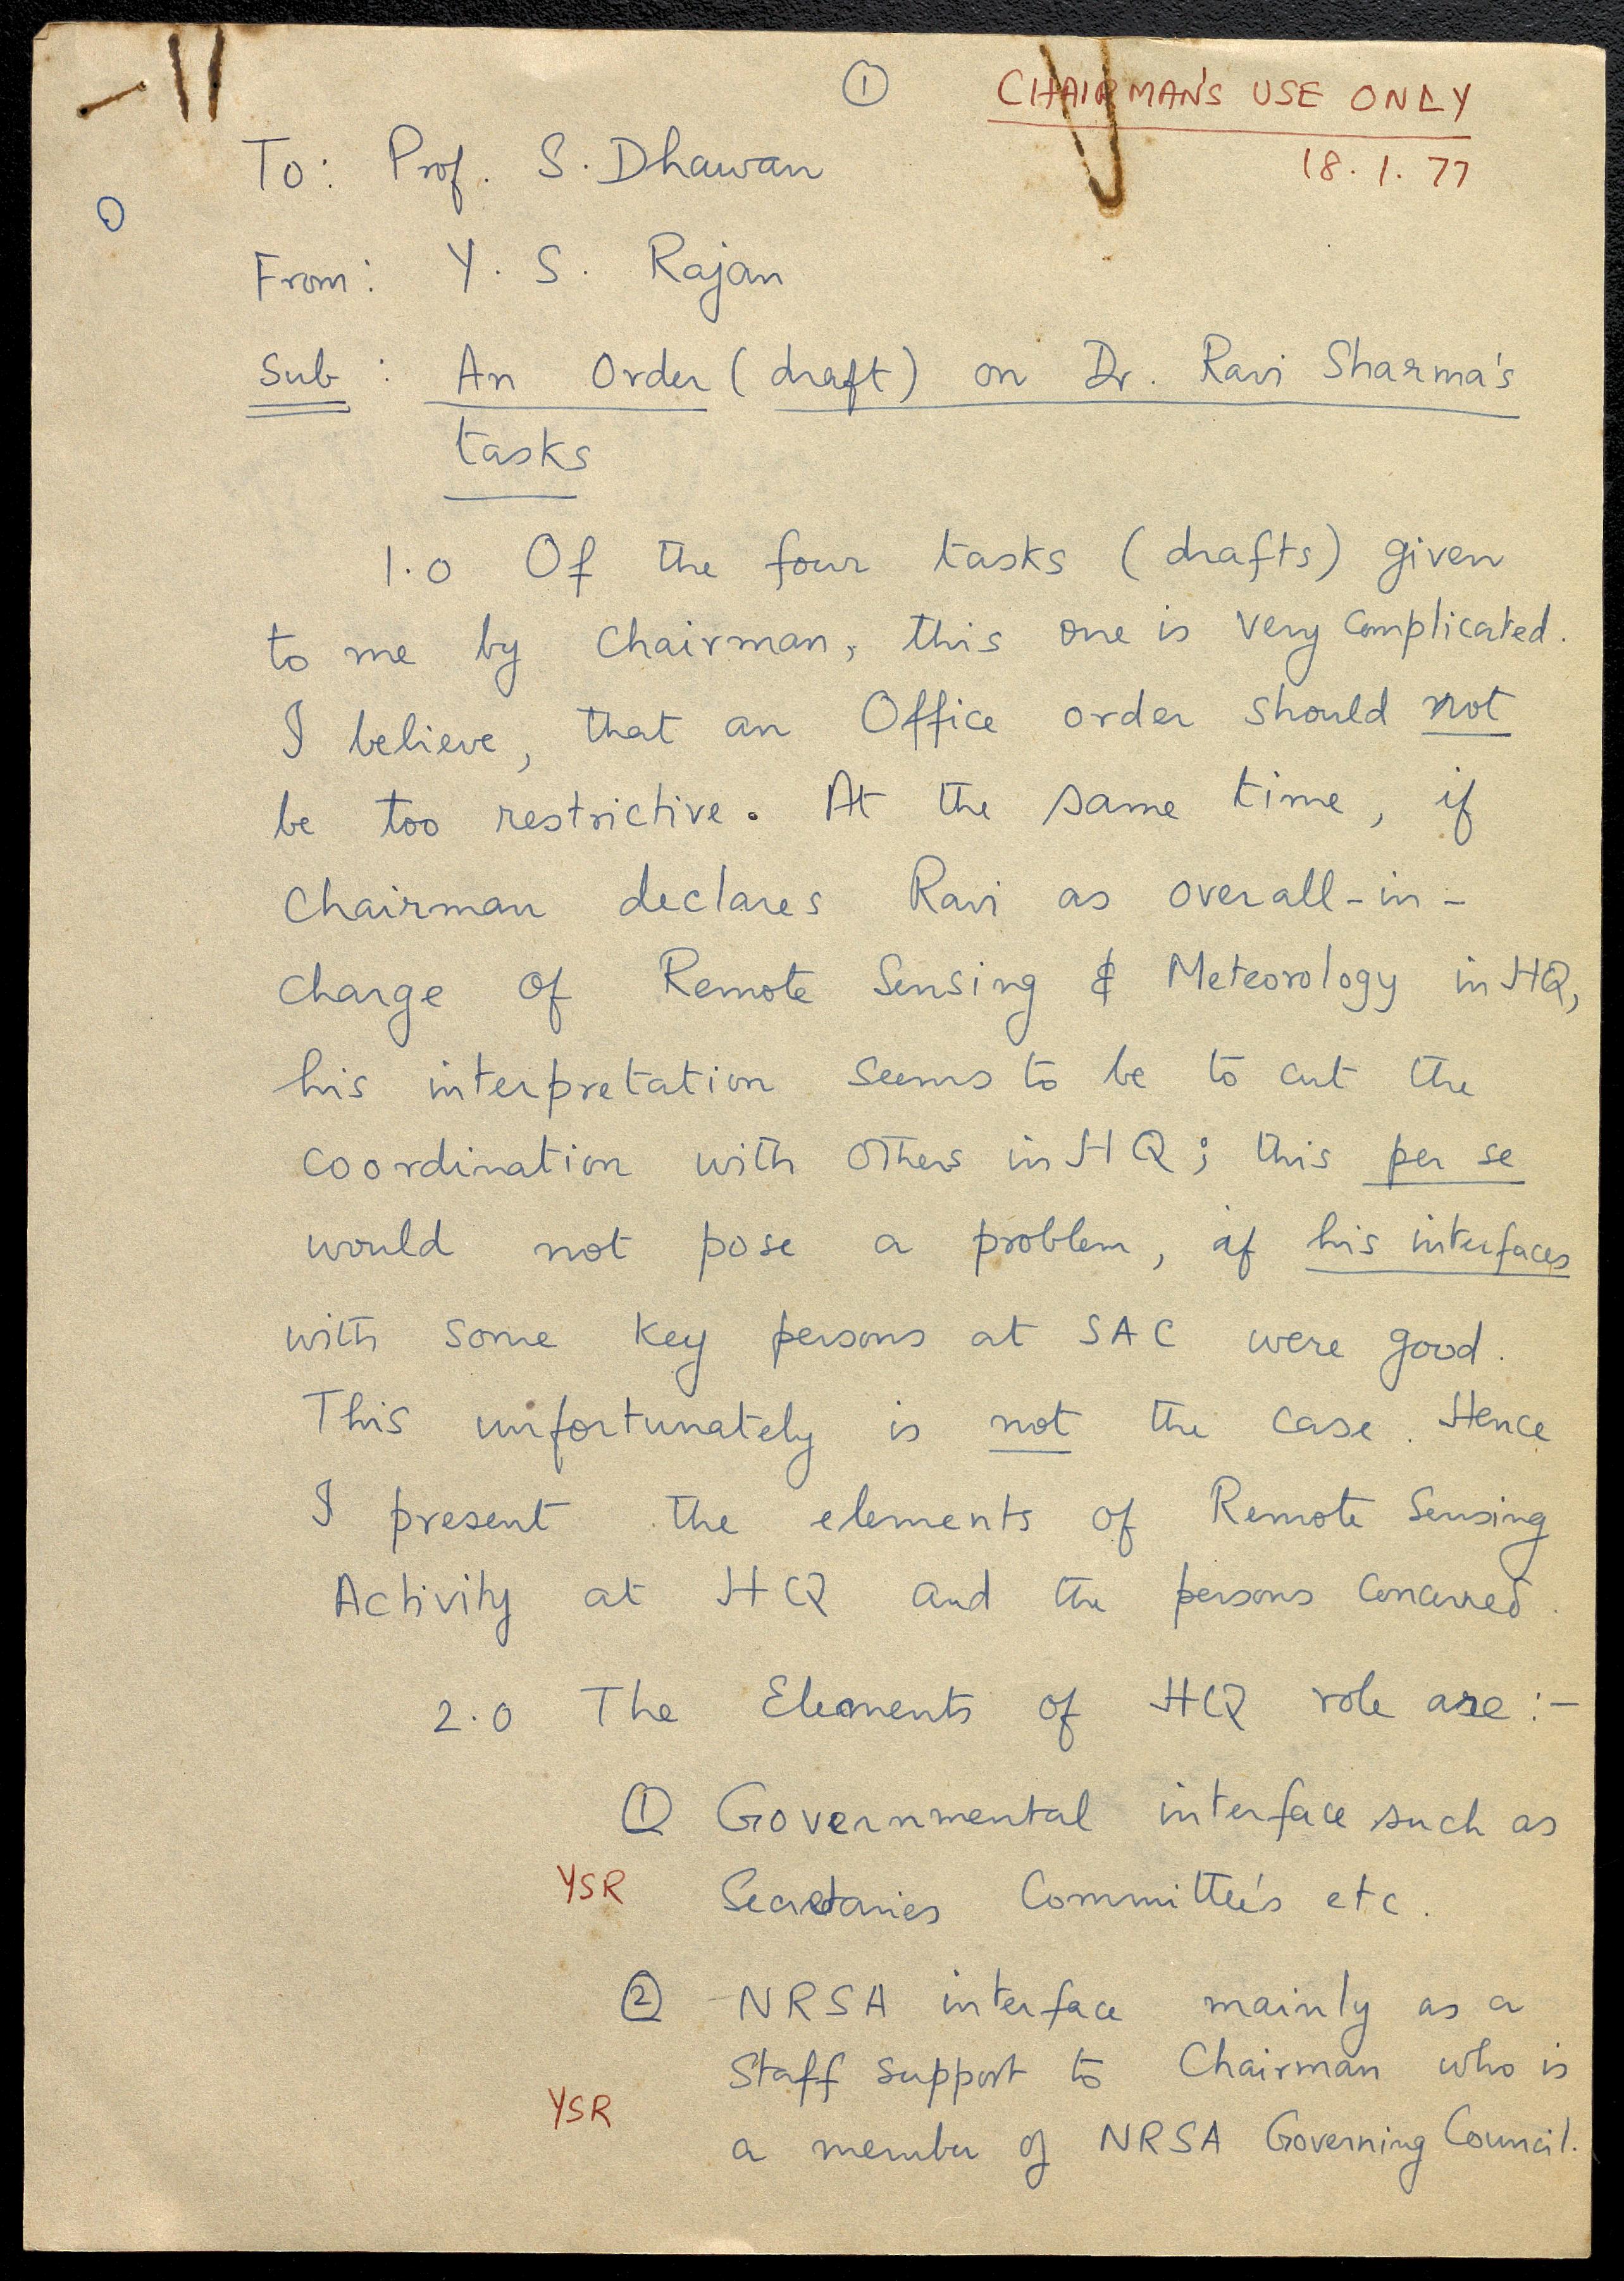 ①
CHAIRMAN'S USE ONLY
18.1.77
To: Prof. S. Dhawan
From: Y. S. Rajan
Sub: An Order (draft) on Dr. Ravi Sharma's
tasks
1.0 Of the four tasks (drafts) given
to me by Chairman, this one is very complicated.
I believe, that an Office order should not
be too restrictive. At the same time, if
Chairman declares Ravi as overall-in-
charge of Remote Sensing & Meteorology in HQ,
his interpretation seems to be to cut the
coordination with others in HQ; this per se
would not pose a problem, if his interfaces
with some key persons at SAC were good.
This unfortunately is not the case. Hence
I present the elements of Remote Sensing
Activity at HQ and the persons concerned.
2.0 The Elements of HQ role are:-
① Governmental interface such as
YSR Secretaries Committee's etc.
② NRSA interface mainly as a
Staff support to Chairman who is
YSR
a member of NRSA Governing Council.